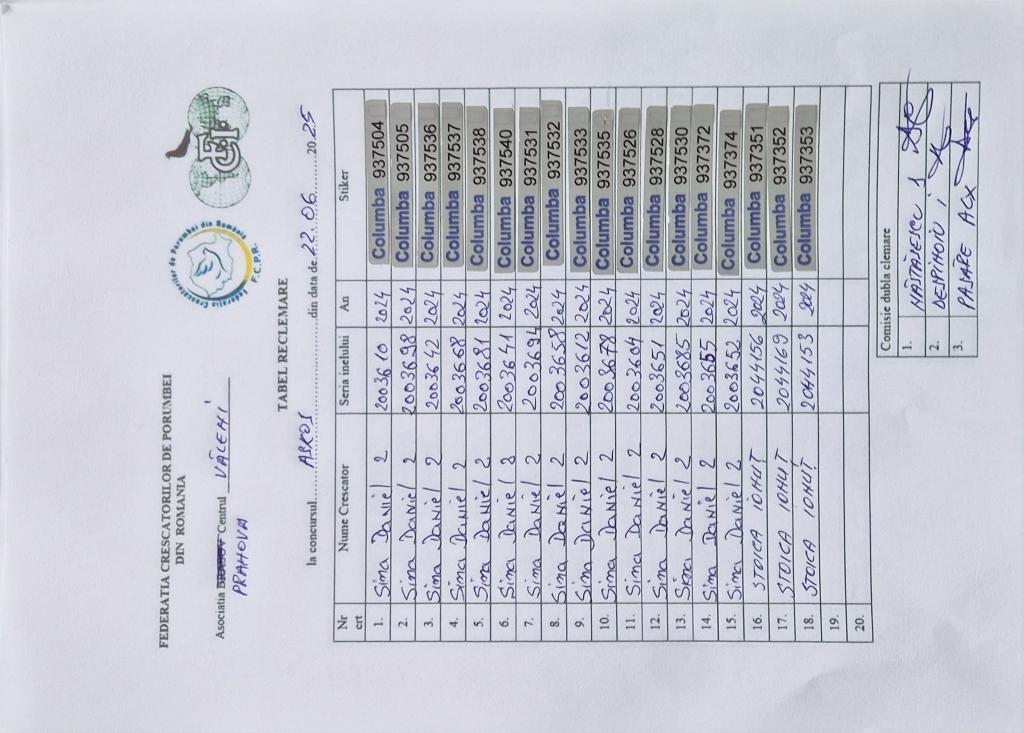 FEDERATIA CRESCATORILOR DE PORUMBEI
DIN ROMANIA
Federatia Crescatorilor de Porumbei din România
F.C.P.R.
Asociatia Centrul VĂLENI
PRAHOVA
TABEL RECLEMARE
la concursul ASKOS din data de 22.06 2025
Nr crt Nume Crescator Seria inelului An Stiker
1. Sima Daniel 2 2003610 2024 Columba 937504
2. Sima Daniel 2 2003698 2024 Columba 937505
3. Sima Daniel 2 2003642 2024 Columba 937536
4. Sima Daniel 2 2003668 2024 Columba 937537
5. Sima Daniel 2 2003681 2024 Columba 937538
6. Sima Daniel 2003641 2024 Columba 937540
7. Sima Daniel 2 2003694 2024 Columba 937531
8. Sima Daniel 2 2003658 2024 Columba 937532
9. Sima Daniel 2 2003612 2024 Columba 937533
10. Sima Daniel 2 2003678 2024 Columba 937535
11. Sima Daniel 2 2003604 2024 Columba 937526
12. Sima Daniel 2 2003651 2024 Columba 937528
13. Sima Daniel 2 2003685 2024 Columba 937530
14. Sima Daniel 2 2003655 2024 Columba 937372
15. Sima Daniel 2 2003652 2024 Columba 937374
16. STOICA IONUȚ 2044156 2024 Columba 937351
17. STOICA IONUȚ 2044169 2024 Columba 937352
18. STOICA IONUȚ 2044153 2024 Columba 937353
19.
20.
Comisie dubla clemare
1.
2.
3.